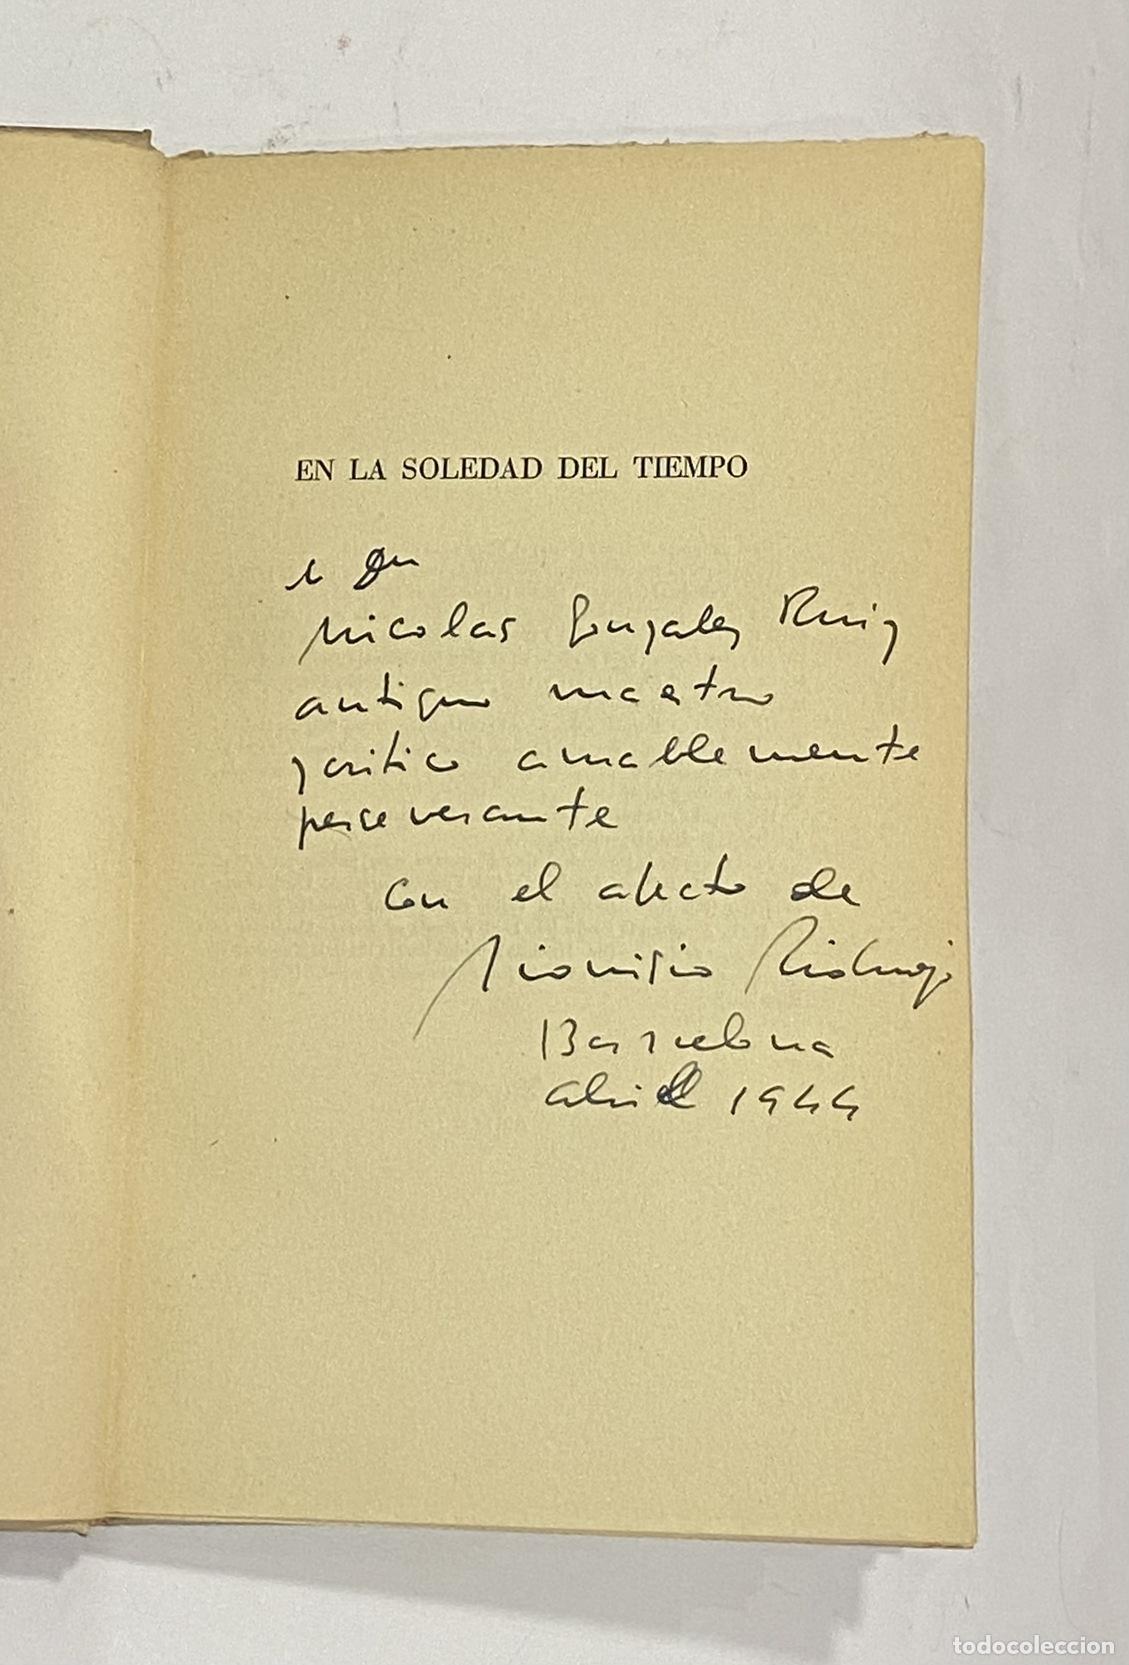 EN LA SOLEDAD DEL TIEMPO
a
Nicolas Gonzalez Ruiz
antiguo maestro
y critico amablemente
perseverante
con el afecto de
Dionisio Ridruejo
Barcelona
abril 1944
todocoleccion